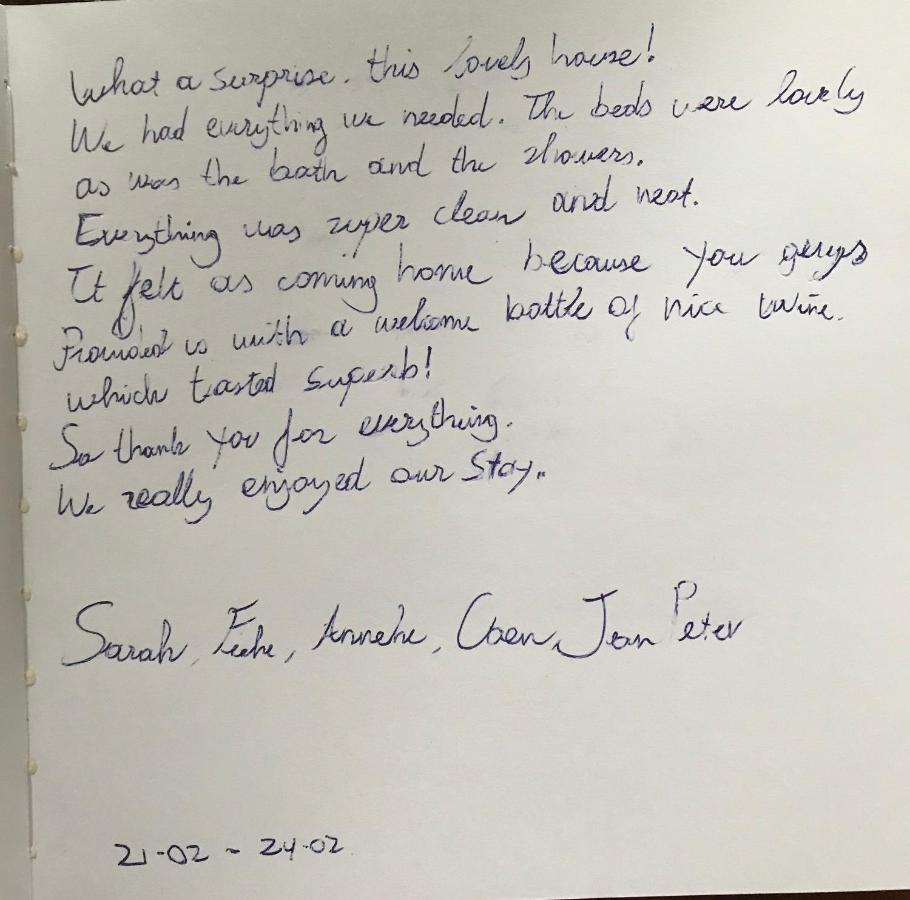 What a surprise. this lovely house!
We had everything we needed. The beds were lovely
as was the bath and the showers.
Everything was super clean and neat.
It felt as coming home because you guys
Provided us with a welcome bottle of nice wine.
which tasted superb!
So thank you for everything.
We really enjoyed our stay..
Sarah, Anneke, Coen, Jan Peter
21-02 ~ 24-02